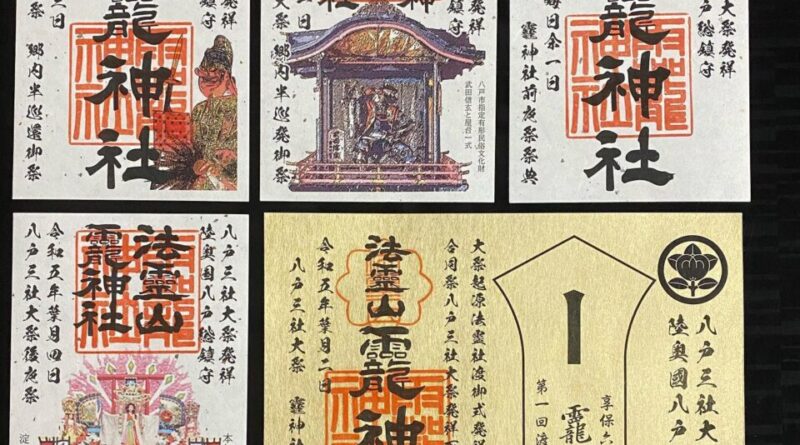 大祭発祥
戸総鎮守
龗神社
郷内半巡還御祭
大祭発祥
戸総鎮守
八戸市指定有形民俗文化財
武田信玄と屋台一式
郷内半巡発御祭
大祭発祥
戸総鎮守
龗神社
龗神社前夜祭祭典
八戸三社大祭発祥
陸奥國八戸総鎮守
法霊山
龗神社
令和五年葉月四日
八戸三社大祭後夜祭
八戸三社大
陸奥國八戸
一
享保六
龗
第一回渡
大祭起源法霊社渡御式発祥
合同祭八戸三社大祭発祥
法霊山龗神
令和五年葉月二日
八戸三社大祭
龗神社